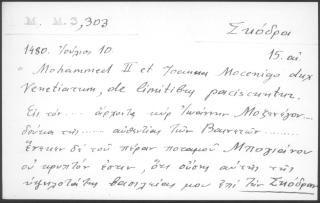 M. M. 3, 303
Σκόδρα
1480. Ιούλιος 10.
15. αἰ
"Mohammed II et Joannes Mocenigo dux
Venetiarum, de limitibus paciscuntur.
Εἰς τόν..... ἄρχοντα κύρ Ἰωάννην Μοζενίγον..
δούκα τῆς ...... αὐθεντίας τῶν Βενετιῶν ......
ἔνεκεν δὲ τοῦ πέραν ποταμοῦ Μπογιάνου
οὐ κρυπτόν ἐστιν, ὅτι οὔσης αὐτῆς τῆς
ὑψηλοτάτης βασιλείας μου ἐπὶ τὴν Σκόδραν